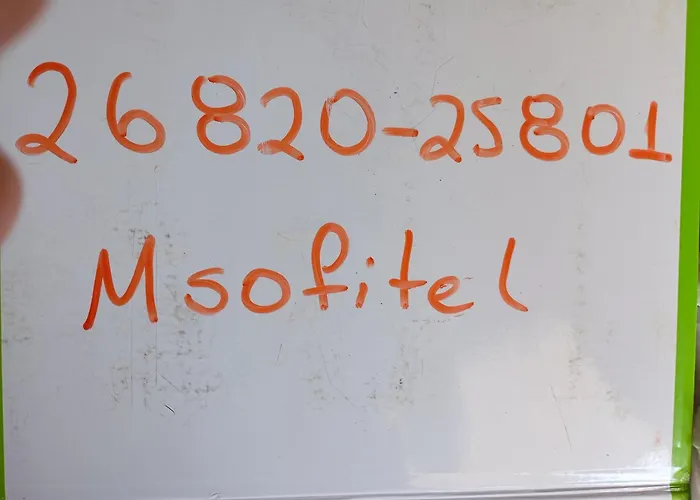 26820-25801
Msofitel